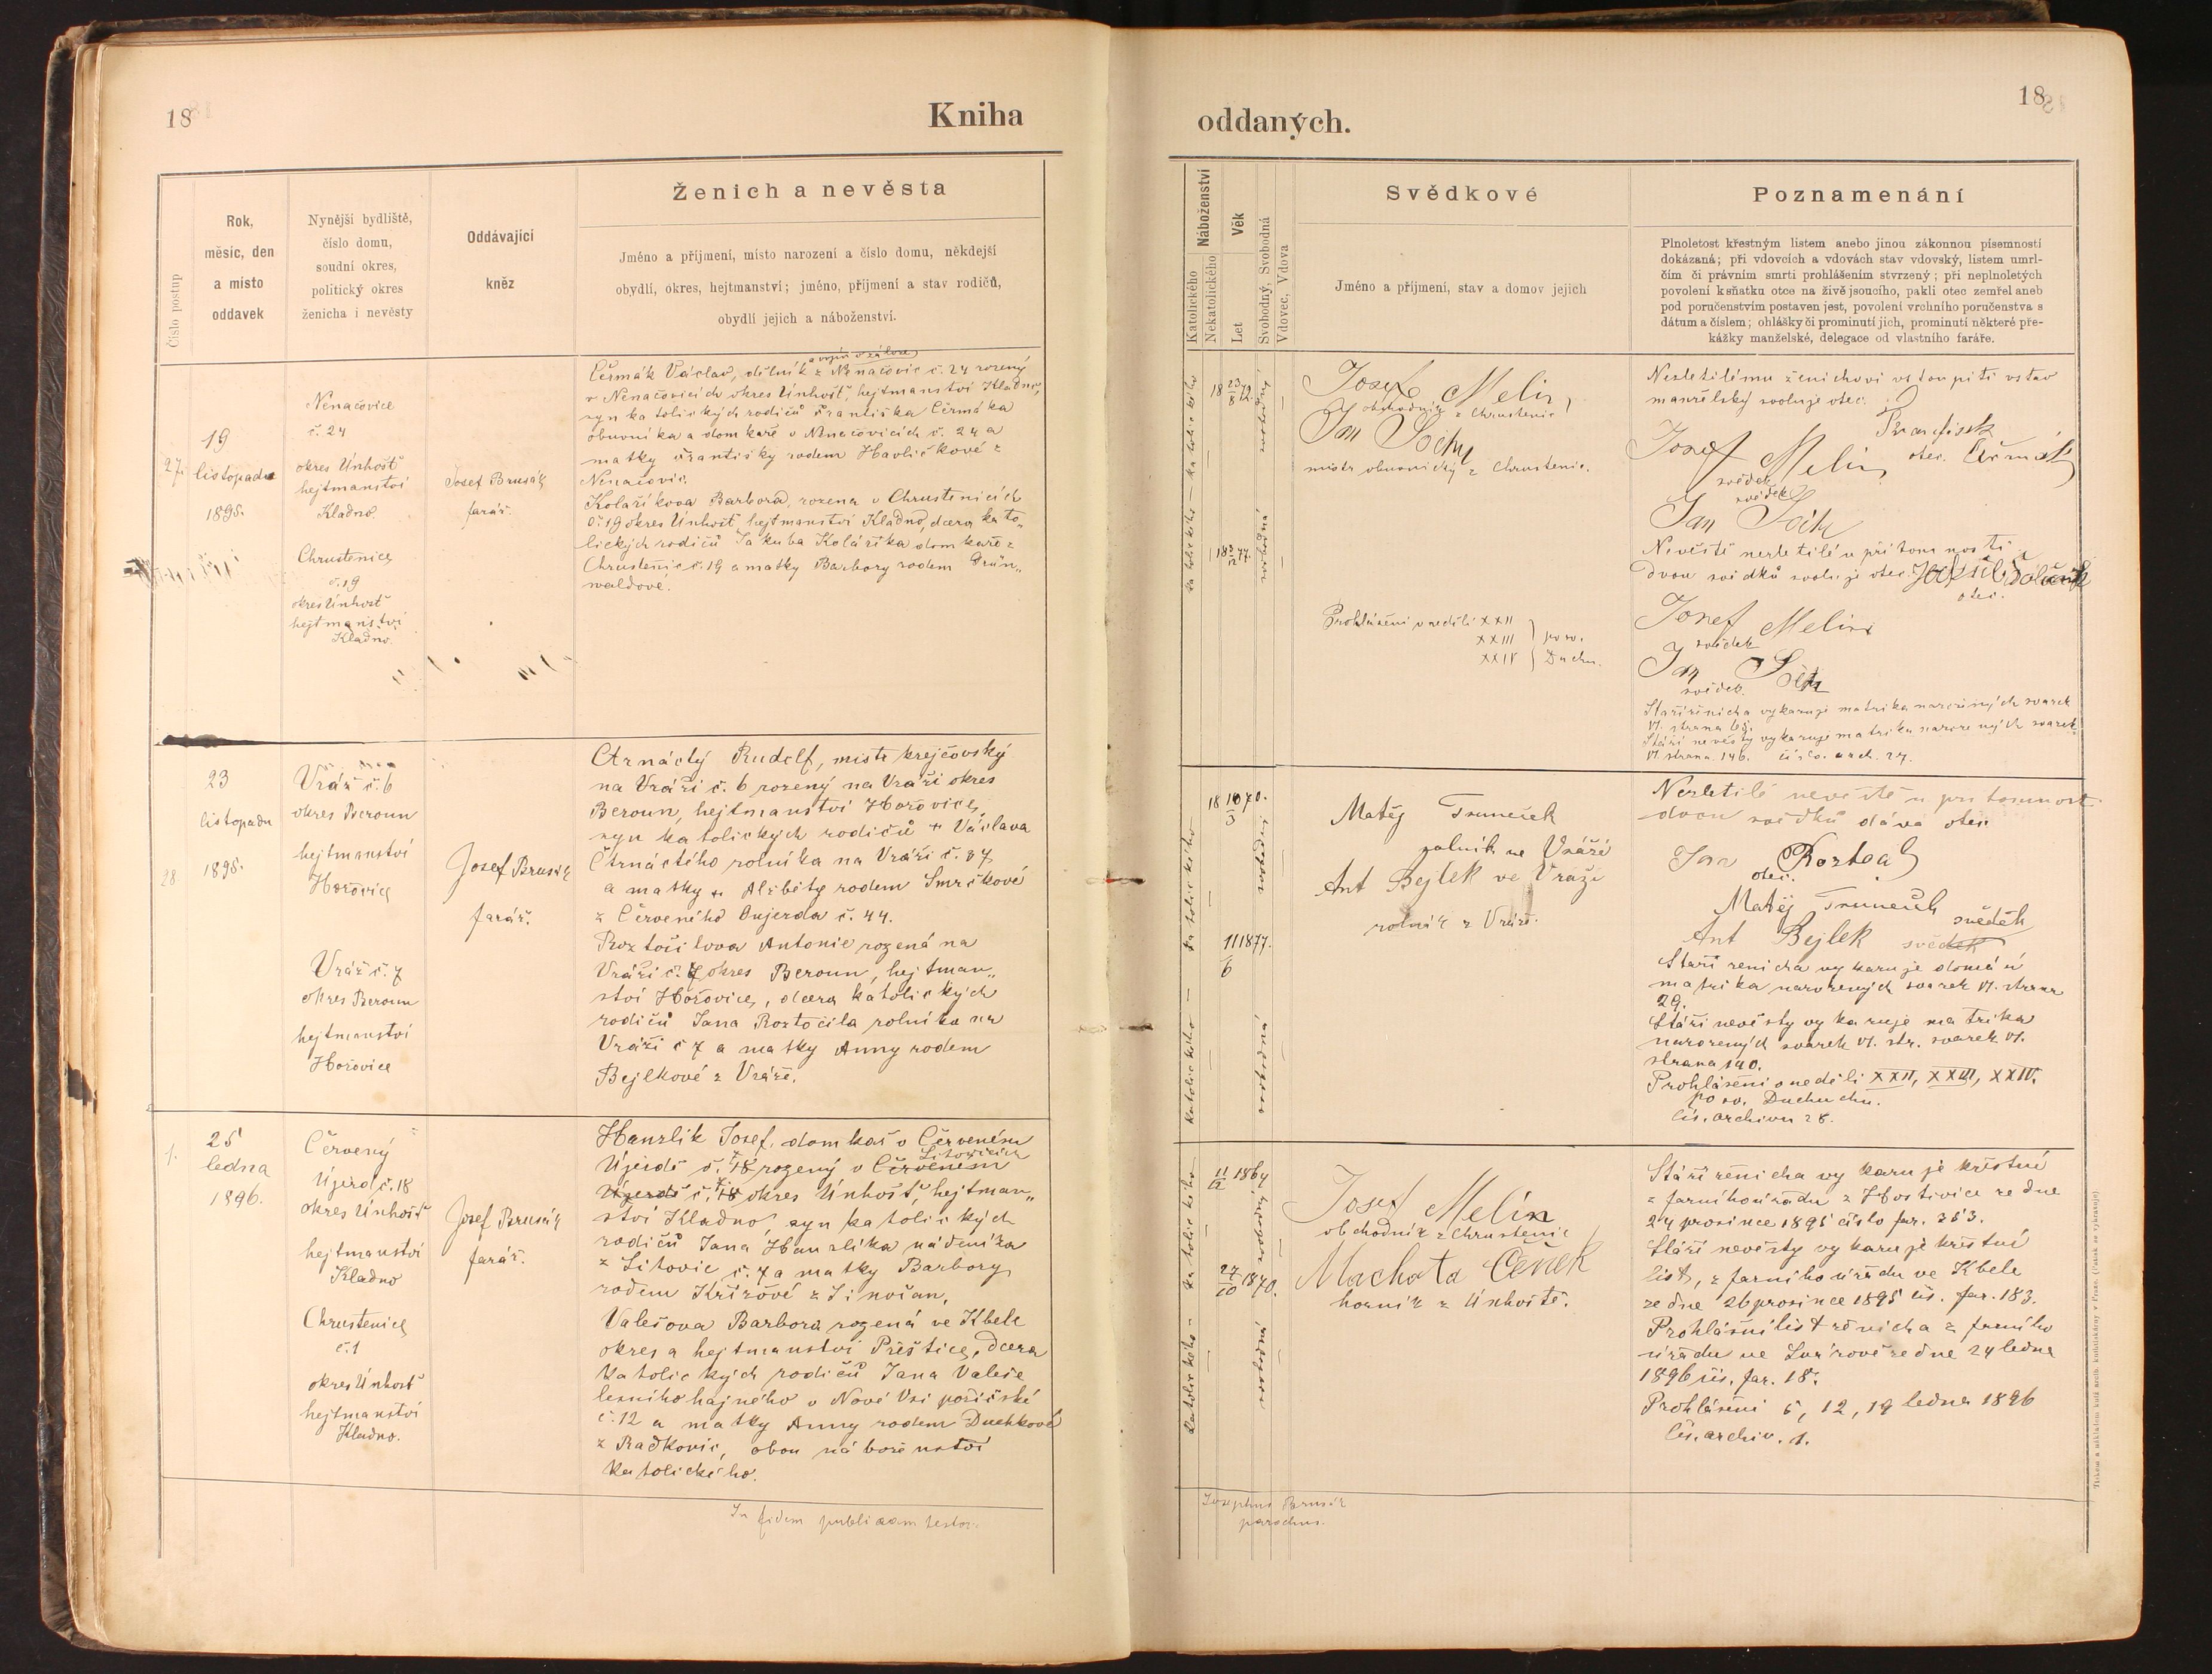 18
Kniha
Číslo postup
Rok,
měsíc, den
a místo
oddavek
Nynější bydliště,
číslo domu,
soudní okres,
politický okres
ženicha i nevěsty
Oddávající
kněz
Ženich a nevěsta
Jméno a příjmení, místo narození a číslo domu, někdejší
obydlí, okres, hejtmanství; jméno, příjmení a stav rodičů,
obydlí jejich a náboženství.
27.
19
listopadu
1895.
Nenačovice
č. 24
okres Únhošť
hejtmanství
Kladno.
Chrustenice
č. 19
okres Únhošť
hejtmanství
Kladno.
Josef Brusák
farář.
Čeřmák Václav, dělník z Nenačovic č. 24 rozený
v Nenačovicích okres Únhošť, hejtmanství Kladno,
syn katolických rodičů Františka Čeřmáka
obuvníka a domkaře v Nenačovicích č. 24 a
matky Františky rodem Havlíčkové z
Nenačovic.
Kolaříkova Barbora, rozena v Chrustenicích
č. 19 okres Únhošť, hejtmanství Kladno, dcera kato„
lických rodičů Jakuba Koláříka domkaře z
Chrustenic č. 19 a matky Barbory rodem Grün„
waldové.
28.
23
listopadu
1895.
Vráž č. 6
okres Beroun
hejtmanství
Hořovice
Vráž č. 7
okres Beroun
hejtmanství
Hořovice
Josef Brusák
farář.
Čtrnáctý Rudolf, mistr krejčovský
na Vráži č. 6 rozený na Vráži okres
Beroun, hejtmanství Hořovice,
syn katolických rodičů + Václava
Čtrnáctého rolníka na Vráži č. 37
a matky + Alžběty rodem Smrčkové
z Červeného Oujezda č. 44.
Roztočilova Antonie rozená na
Vráži č. 7 okres Beroun, hejtman„
ství Hořovice, dcera katolických
rodičů Jana Roztočila rolníka na
Vráži č 7 a matky Anny rodem
Bejlkové z Vráže.
1.
25
ledna
1896.
Červený
Újezd č. 18
okres Únhošť
hejtmanství
Kladno
Chrustenice
č. 1
okres Únhošť
hejtmanství
Kladno.
Josef Brusák
farář.
Hanzlík Josef, domkař v Červeném
Újezdě č. 18 rozený v Červeném Litovicích
Újezdě č. 18 okres Únhošť, hejtman„
ství Kladno, syn katolických
rodičů Jana Hanzlíka nádeníka
z Litovic č. 7 a matky Barbory
rodem Křížové z Jinočan.
Valešova Barbora rozená ve Kbele
okres a hejtmanství Přeštice, dcera
katolických rodičů Jana Valeše
lesního hajného v Nové Vsi poříčské
č. 12 a matky Anny rodem Duchkové
z Radkovic, obou náboženství
katolického.
In fidem publicam testor.
oddaných.
18
Náboženství
Katolického
Nekatolického
Věk
Let
Svobodný, Svobodná
Vdovec, Vdova
Svědkové
Jméno a příjmení, stav a domov jejich
Poznamenání
Plnoletost křestným listem anebo jinou zákonnou písemností
dokázaná; při vdovcích a vdovách stav vdovský, listem umrl-
čím či právním smrti prohlášením stvrzený; při neplnoletých
povolení k sňatku otce na živě jsoucího, pakli otec zemřel aneb
pod poručenstvím postaven jest, povolení vrchního poručenstva s
dátum a číslem; ohlášky či prominutí jich, prominutí některé pře-
kážky manželské, delegace od vlastního faráře.
katolického — katolického
18 23/8 72.
svobodný
svobodná
Josef Melín
obchodník z Chrustenic
Jan Šochy
mistr obuvnický z Chrustenic.
Prohlášení v neděli XXII
XXIII } po sv.
XXIV } Duchu.
Nezletilému ženichovi vstoupiti v stav
manželský svoluje otec.
František
otec. Čeřmák
Josef Melín
svědek
svědek
Jan
Nevěstě nezletilé v přítomnosti
dvou svědků svoluje otec.
otec.
Josef Melín
svědek
Jan
svědek.
Stáří ženicha vykazuje matrika narozených svazek
VI. strana
Stáří nevěsty vykazuje matrika narozených svazek
VI. strana 146. číslo arch. 27.
katolického — katolického
18 16/3 70.
11/6 1877.
svobodný
svobodná
Matěj Truneček
rolník ve Vráži
Ant Bejlek ve Vráži
rolník z Vráže.
Nezletilé nevěstě u přítomnosti
dvou svědků dává otec
Jan
otec.
Matěj Truneček
svědek
Ant Bejlek svědek
Stáří ženicha vykazuje domácí
matrika narozených svazek VI. strana
29.
Stáří nevěsty vykazuje matrika
narozených svazek VI. str. svazek VI.
strana 190.
Prohlášení v neděli XXII, XXIII, XXIV.
po sv. Duchu
čís. archivu 28.
katolického — katolického
11/12 1864
27/10 1870.
svobodný
svobodná
Josef Melín
obchodník z Chrustenic
Machota Čeněk
horník z Únhoště.
Stáří ženicha vykazuje křestní
z farního úřadu z Hostivice ze dne
24 prosince 1895 číslo far. 353.
Stáří nevěsty vykazuje křestní
list, z farního úřadu ve Kbele
ze dne 26 prosince 1895 čís. far. 183.
Prohlášní list ženicha z farního
úřadu ve Svárově ze dne 24 ledna
1896 čís. far. 18.
Prohlášení 5, 12, 19 ledna 1896
čís. archiv. 1.
Josephus Brusák
parochus.